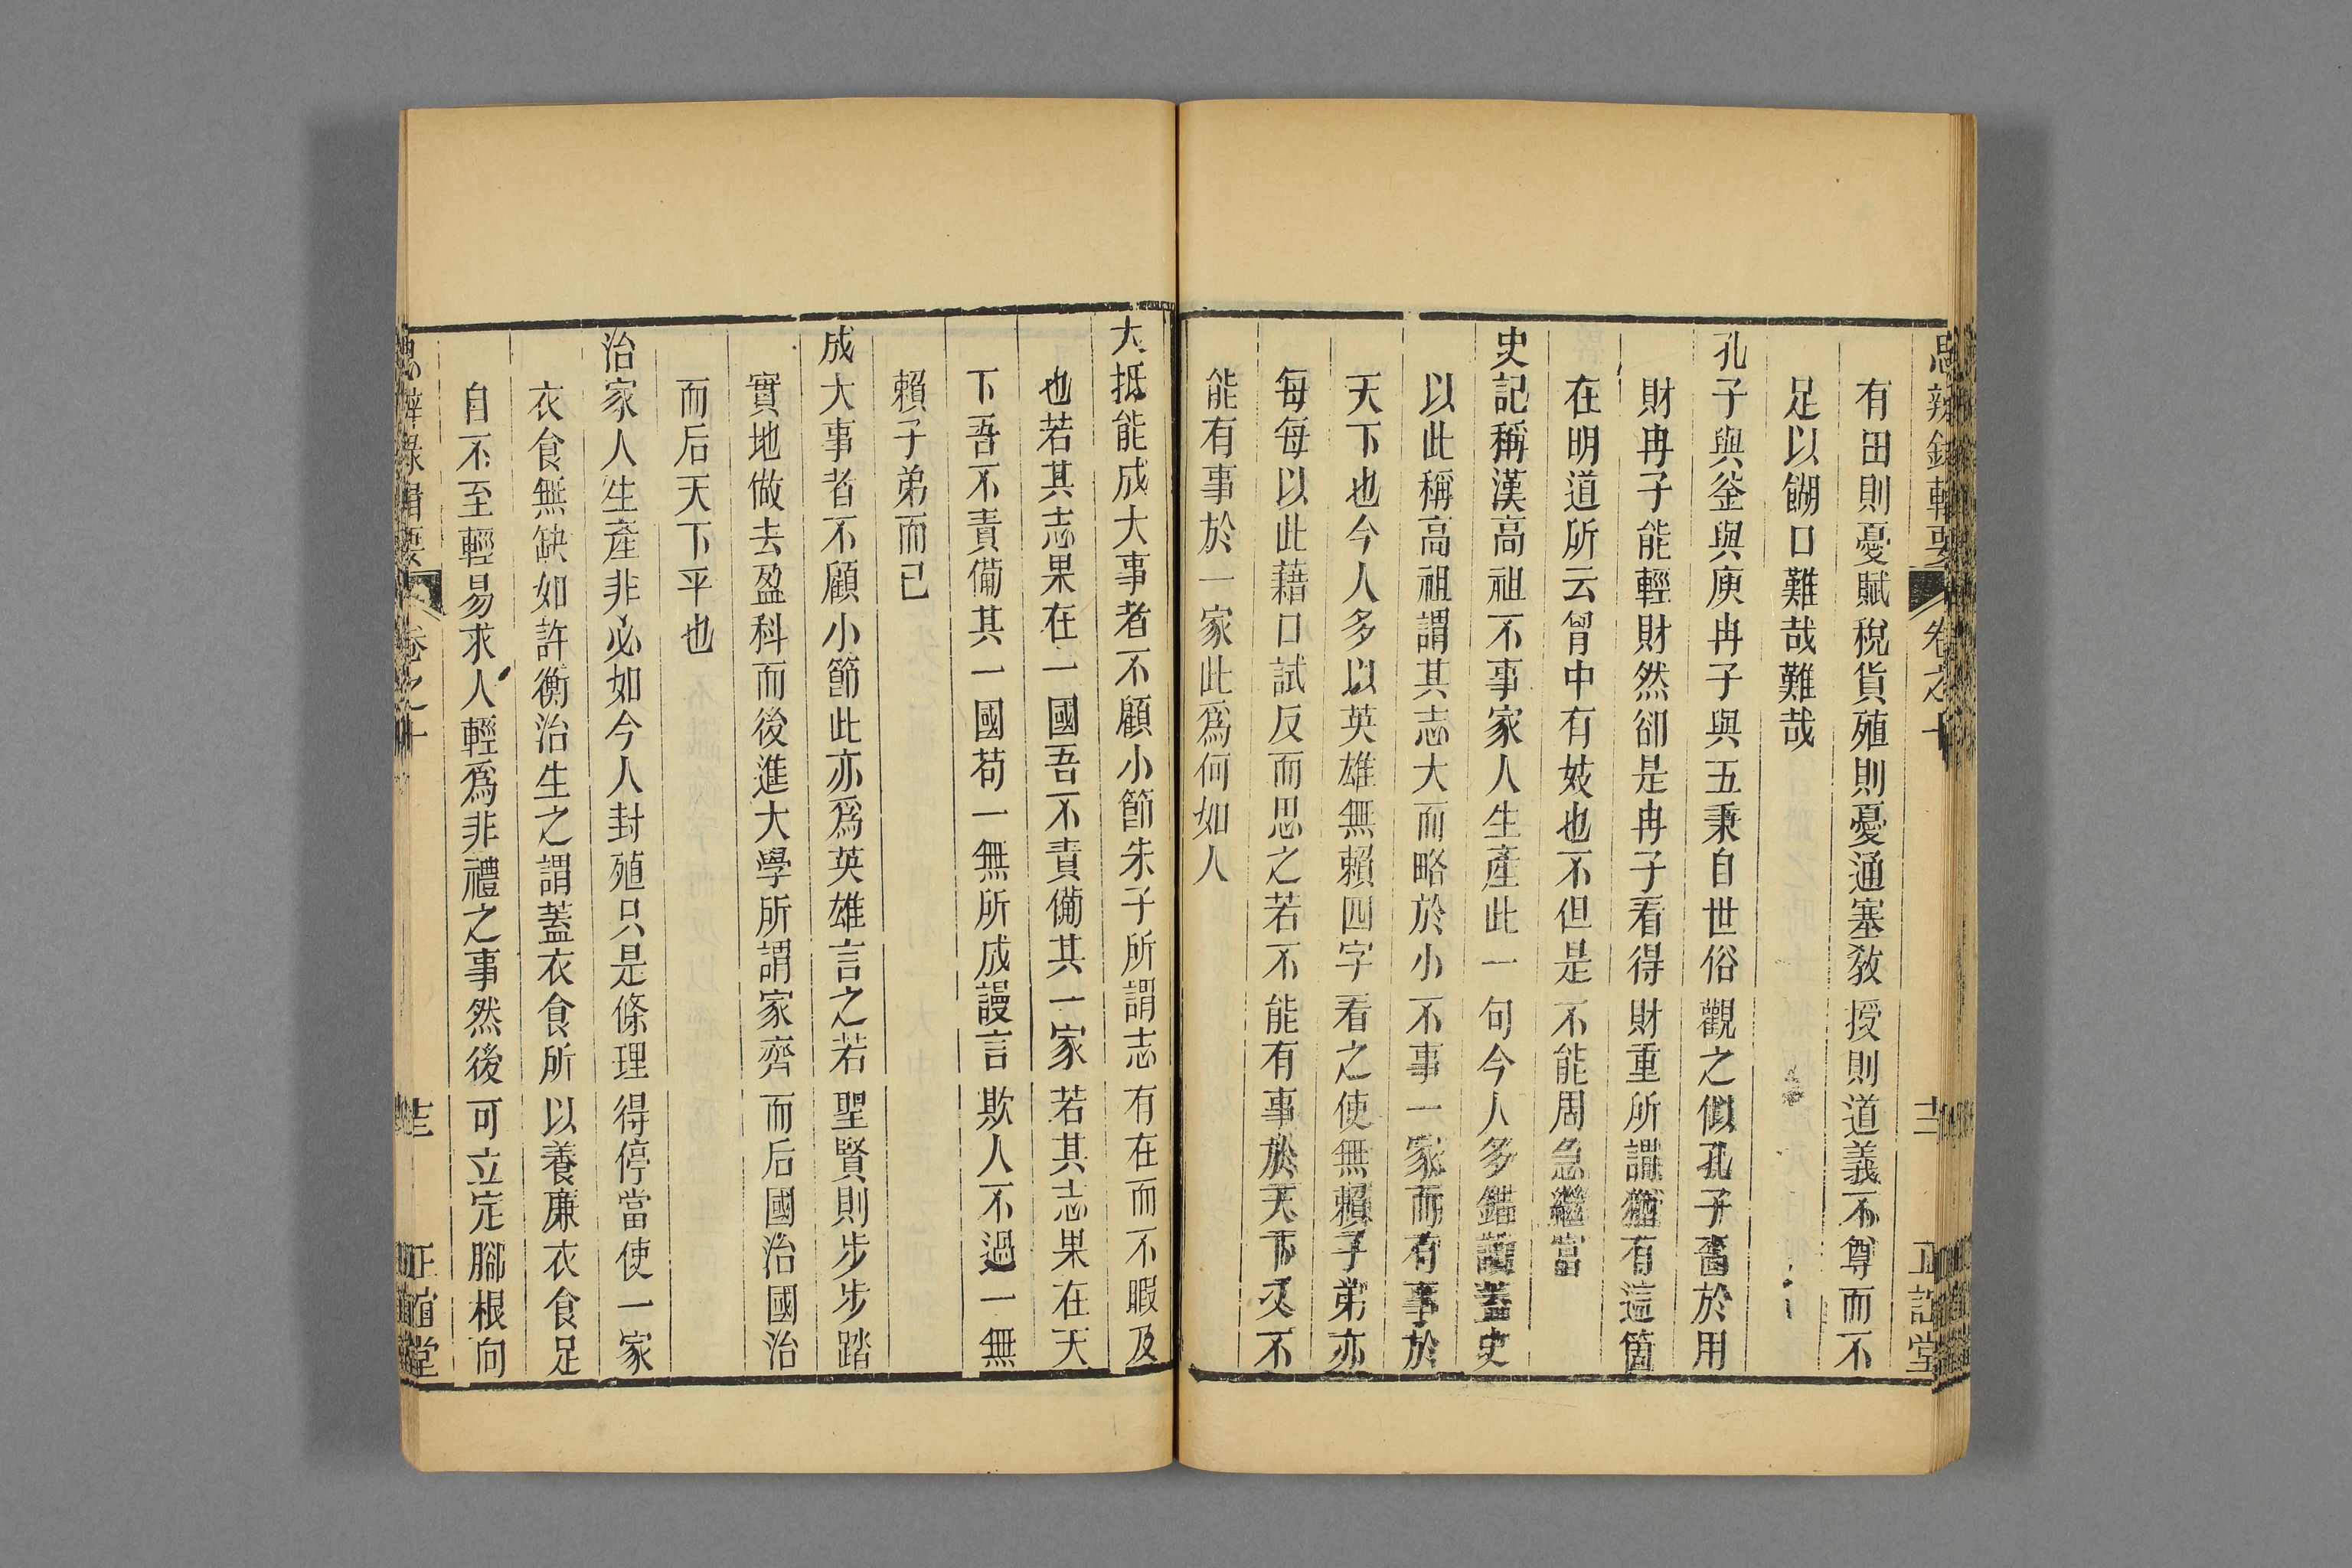 思辨錄輯要 卷之十 十二 正誼堂
有田則憂賦稅貨殖則憂通塞敎授則道義不尊而不
足以餬口難哉難哉
孔子與釜與庾冉子與五秉自世俗觀之似孔子嗇於用
財冉子能輕財然卻是冉子看得財重所謂猶有這箇
在明道所云胷中有妓也不但是不能周急繼富
史記稱漢高祖不事家人生產此一句今人多錯讀蓋史
以此稱高祖謂其志大而略於小不事一家而有事於
天下也今人多以英雄無賴四字看之使無賴子弟亦
每每以此藉口試反而思之若不能有事於天下又不
能有事於一家此爲何如人
大抵能成大事者不顧小節朱子所謂志有在而不暇及
也若其志果在一國吾不責備其一家若其志果在天
下吾不責備其一國苟一無所成謾言欺人不過一無
賴子弟而已
成大事者不顧小節此亦爲英雄言之若聖賢則步步踏
實地做去盈科而後進大學所謂家齊而后國治國治
而后天下平也
治家人生產非必如今人封殖只是條理得停當使一家
衣食無缺如許衡治生之謂蓋衣食所以養廉衣食足
自不至輕易求人輕爲非禮之事然後可立定腳根向
思辨錄輯要 卷之十 十三 正誼堂